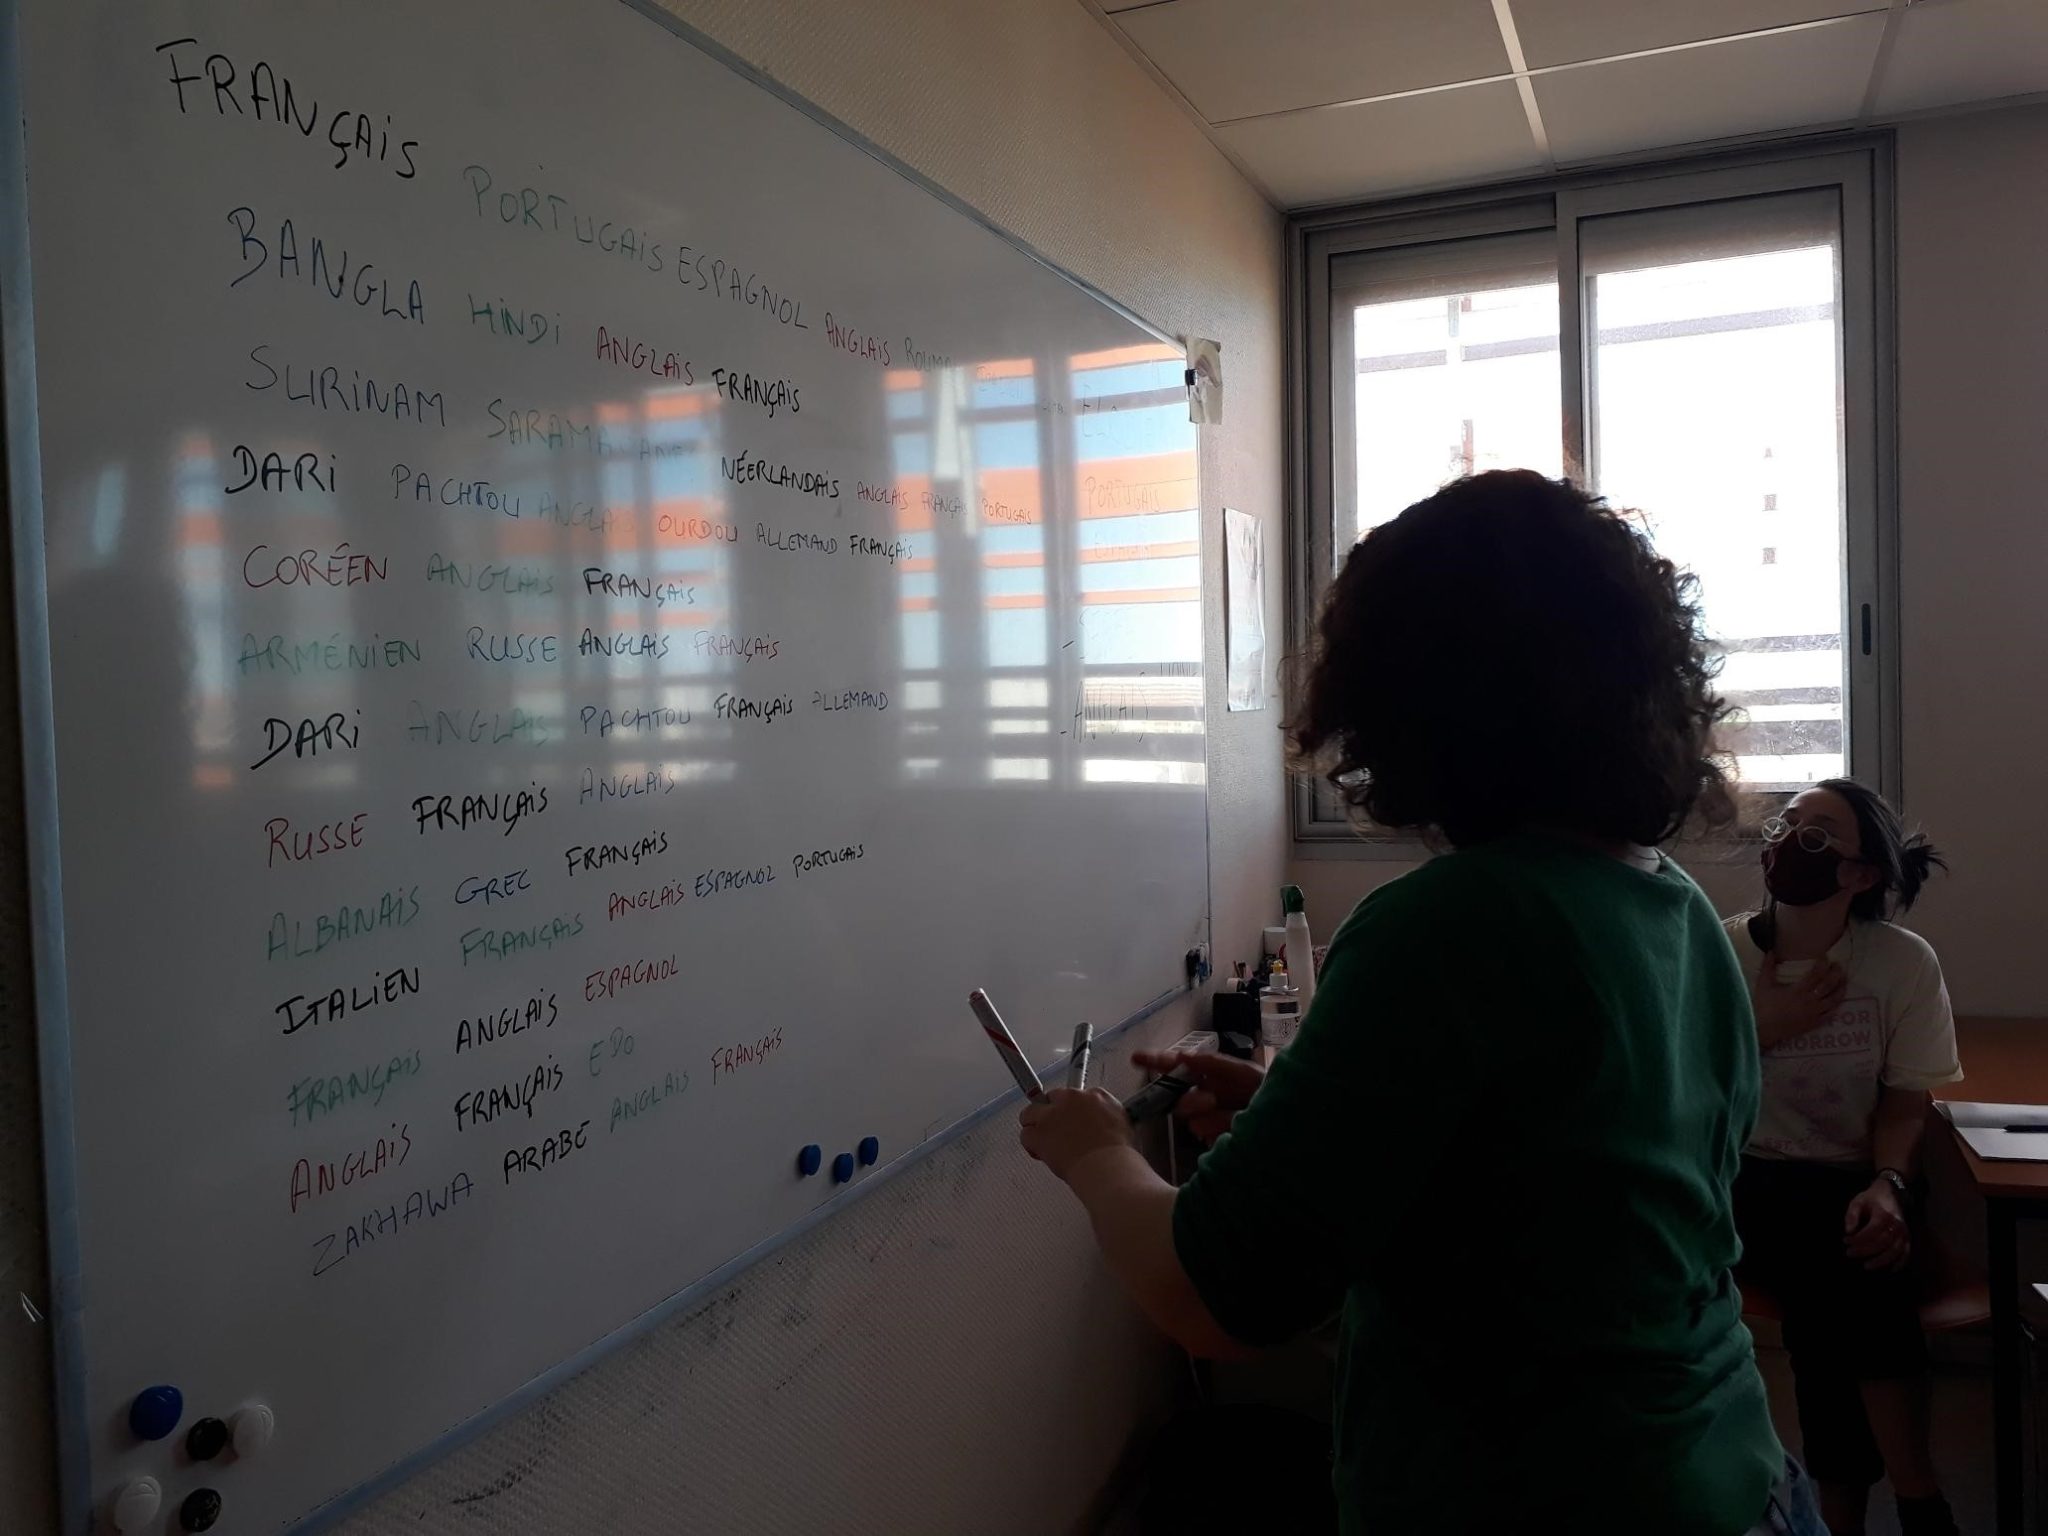 FRANÇAIS PORTUGAIS ESPAGNOL ANGLAIS
BANGLA HINDI ANGLAIS FRANÇAIS
SURINAM NÉERLANDAIS ANGLAIS FRANÇAIS PORTUGAIS
DARI PACHTOU ANGLAIS OURDOU ALLEMAND FRANÇAIS
CORÉEN ANGLAIS FRANÇAIS
ARMÉNIEN RUSSE ANGLAIS FRANÇAIS
DARI ANGLAIS PACHTOU FRANÇAIS ALLEMAND
RUSSE FRANÇAIS ANGLAIS
ALBANAIS GREC FRANÇAIS
ITALIEN FRANÇAIS ANGLAIS ESPAGNOL PORTUGAIS
FRANÇAIS ANGLAIS ESPAGNOL
ANGLAIS FRANÇAIS EDO
ZAKHAWA ARABE ANGLAIS FRANÇAIS
PORTUGAIS
ANGLAIS
FOR